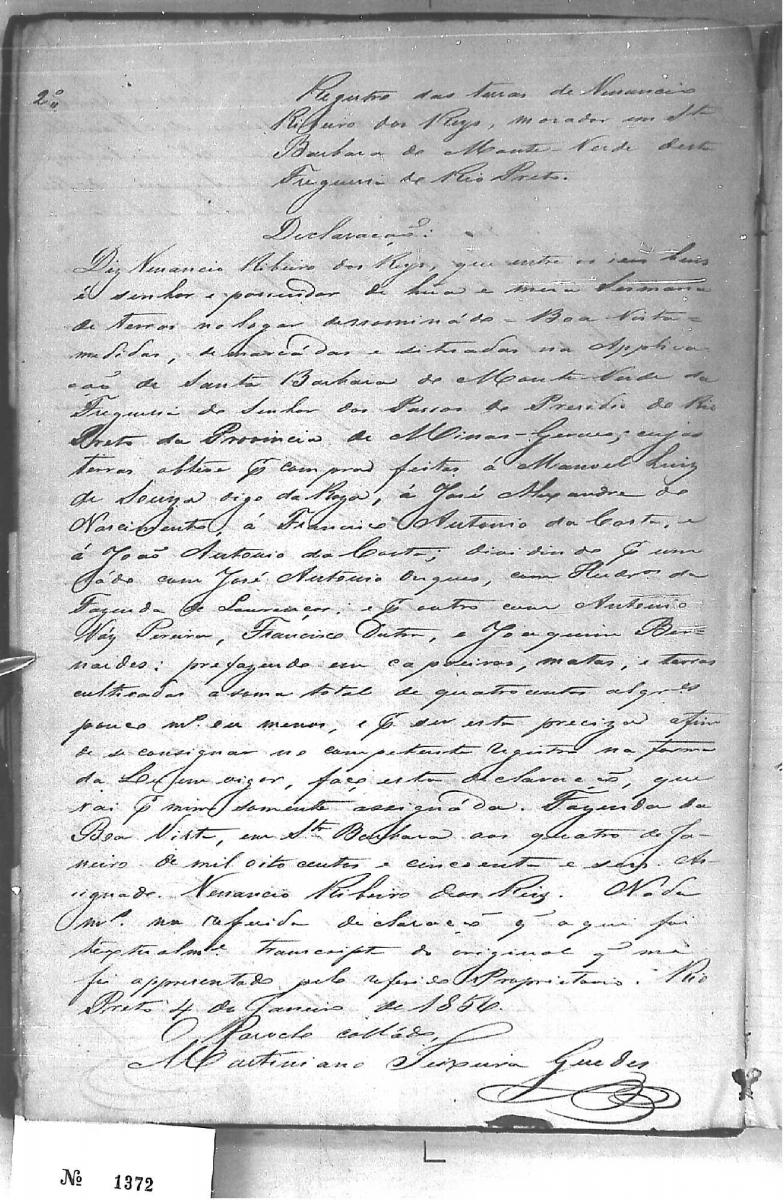 2º
Registro das terras de Venancio
Ribeiro dos Reys, morador em Stª
Barbara do Monte Verde desta
Freguesia do Rio Preto.
Declaração:
Diz Venancio Ribeiro dos Reys, que entre os seus bens
é senhor e possuidor de hũa e meia Sesmaria
de terras no logar denominádo - Boa Vista -
medidas, demarcádas e sitiadas na Applica
cão de Santa Barbara do Monte Verde da
Freguesia do Senhor dos Passos do Presidio do Rio
Preto da Provincia de Minas-Geraes, cujas
terras obteve p compras feitas á Manoel Luiz
de Souza, á José Alexandre do
Nascimento, á Francisco Antonio da Costa, e
á João Antonio da Costa; dividindo p um
ládo com José Antonio, com Herdros da
Fazenda de; e p outro com Antonio
Váz Pereira, Francisco Dutra, e Joaquim Ber-
nardes: prefazendo em capoeiras, matas, e terras
cultivadas a suma total de quatrocentos alqres
pouco ms. ou menos, e p ser esta preciza afim
de se consignar no competente registro na forma
da Lei em vigor, faço esta declaracão, que
vai p mim somente assignáda. Fazenda da
Boa Vista, em Stª Barbara aos quatro de Ja-
neiro de mil oito centos e cincoenta e seis. As-
signado. Venancio Ribeiro dos Reis. Náda
ms. na referida declaracão q aqui foi
textualme. transcripta do original q me
foi appresentado pelo referido Proprietario. Rio
Preto 4 de Janeiro de 1856.
O Parocho colládo,
Martiniano Teixeira Guedes
Nº 1372